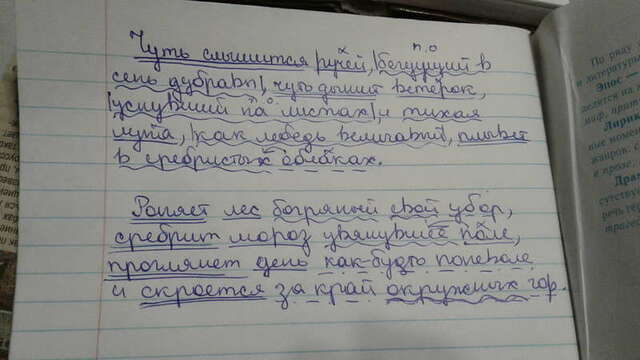 п.о
Чуть слышится ручей, |бегущий в
сень дубравы|, чуть дышит ветерок,
|уснувший на листах| и тихая
луна, |как лебедь величавый|, плывёт
в сребристых облаках.
Роняет лес багряный свой убор,
сребрит мороз увянувшее поле,
проглянет день как-будто поневоле
и скроется за край окружных гор.
По
и литератур
Эпос —
делится на
миф, пред
Лирик
ные момен
жанров:
в прозе
Дра
сутство
речь гер